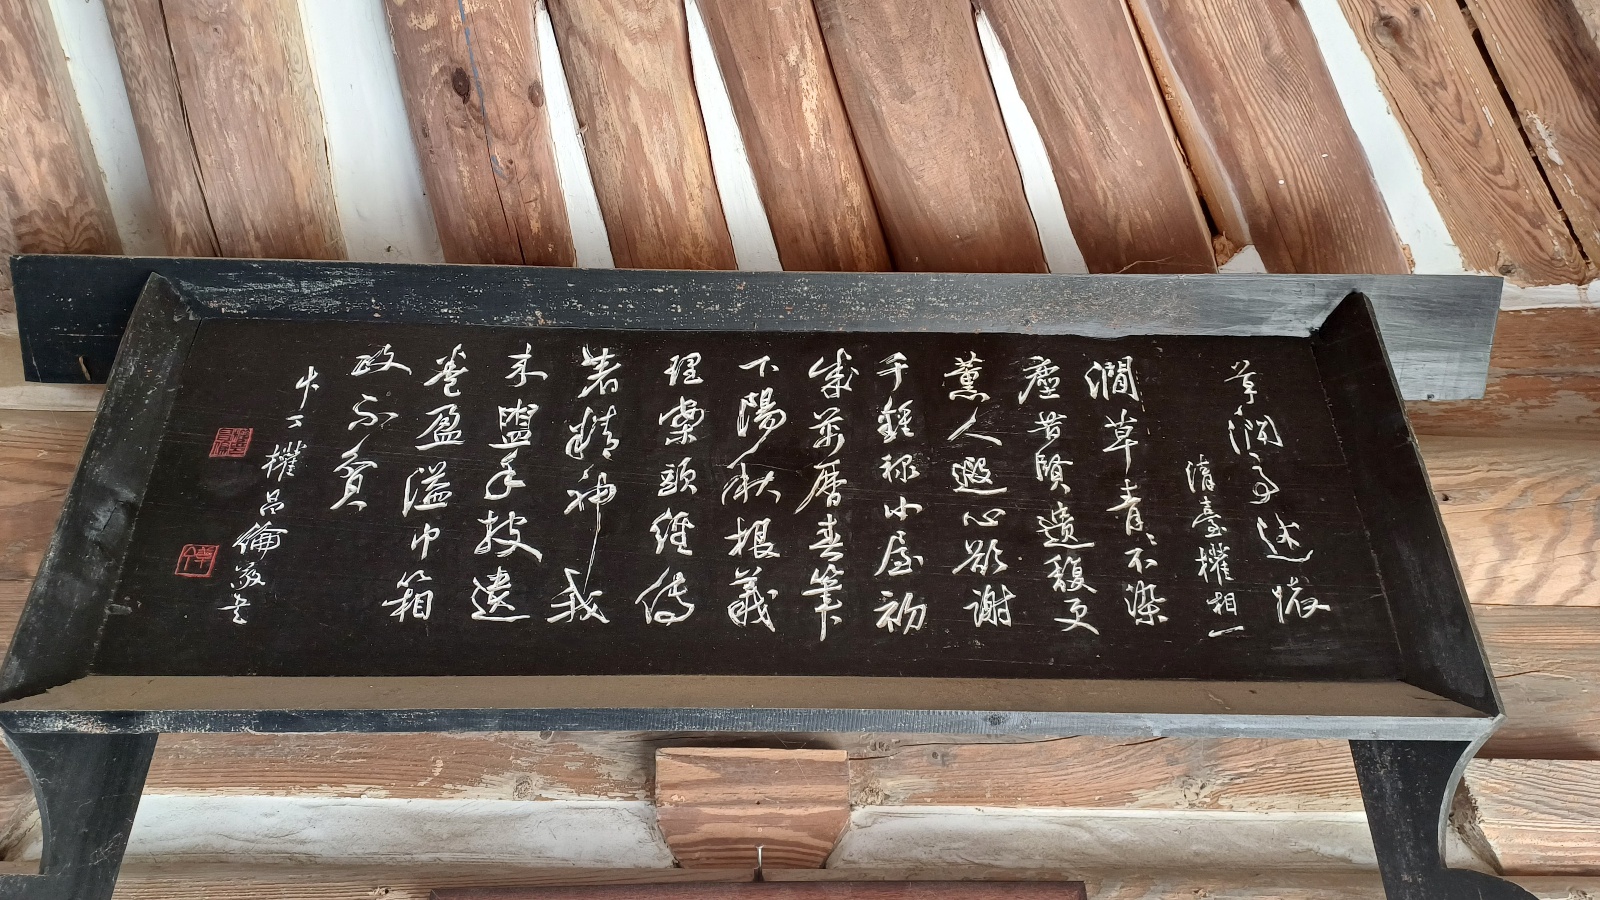 草澗亭述懷
清臺權相一
澗草青〻不染
塵昔賢遺馥更
薰人遐心欲謝
千鍾祿小屋初
成萬曆春筆
下陽秋根義
理案頭經傳
著精神我
来盥手披遺
卷盈溢巾箱
政不貧
權昌倫敬書